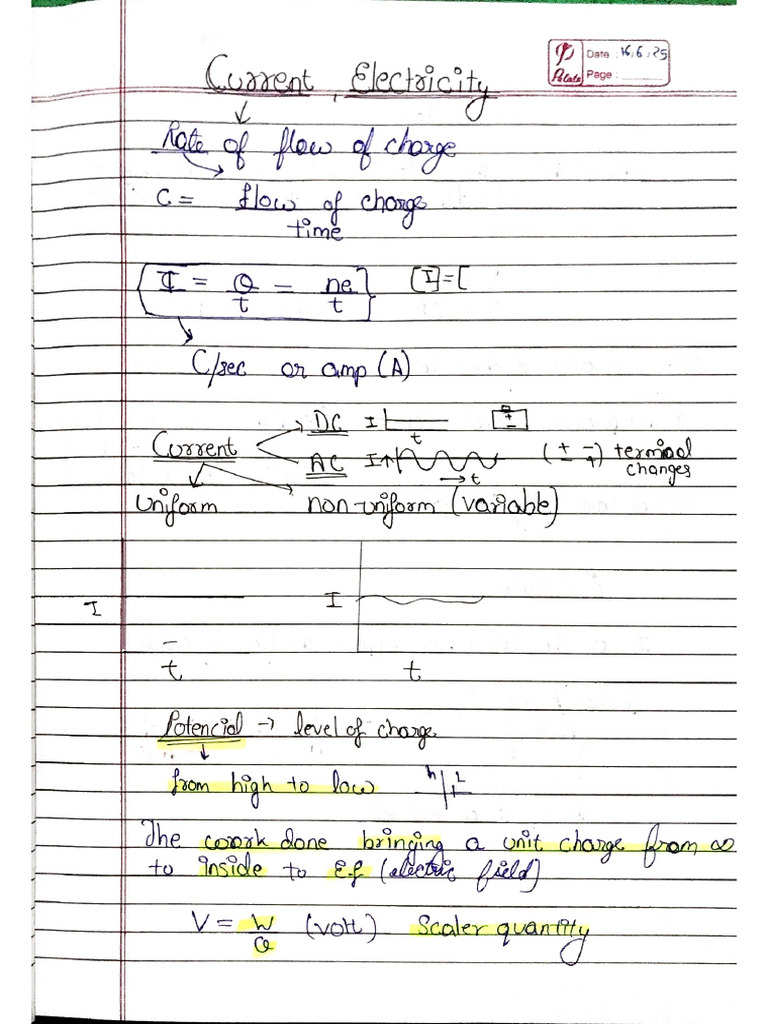 Date : 16.6.25
Page :
Current Electricity
Rate of flow of charge
C = flow of charge
time
I = Q/t = ne/t [I]=[
C/sec or amp (A)
DC I t + -
Current
AC I t (+ - - +) terminal changes
uniform non-uniform (variable)
I I
t t
Potencial → level of charge
from high to low h L
The work done bringing a unit charge from ∞
to inside to E.f (electric field)
V = W/Q (volt) Scaler quantity